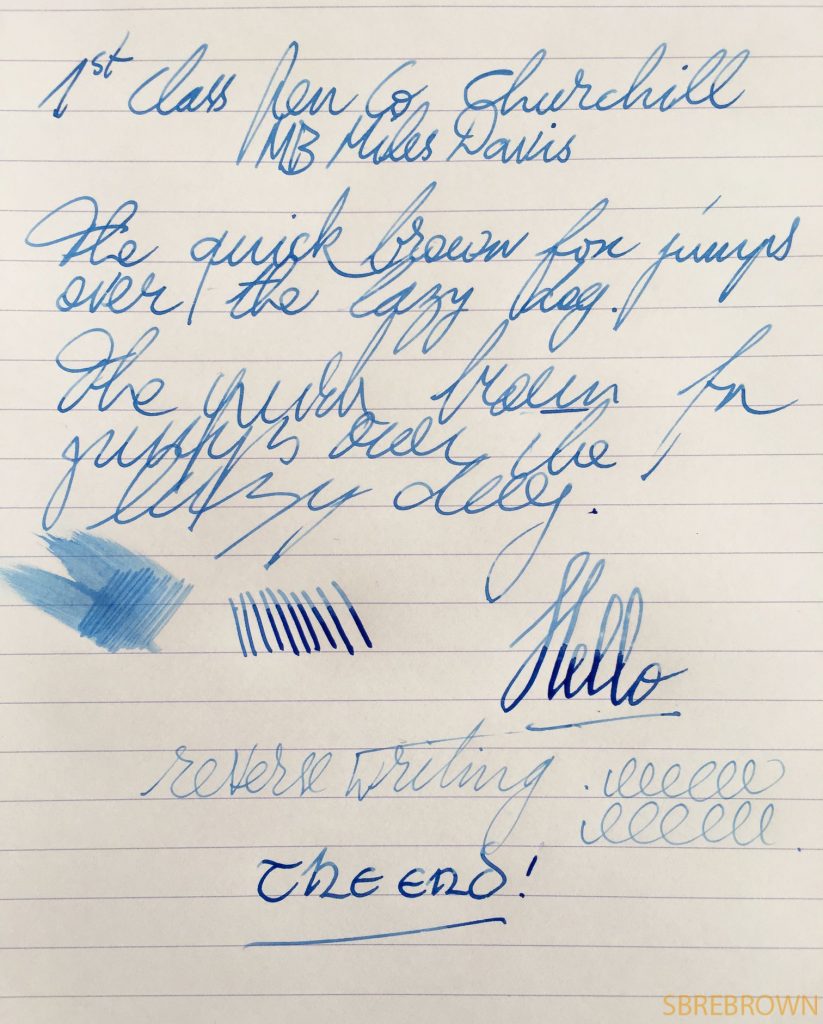 1st Class Pen Co Churchill
MB Miles Davis
The quick brown fox jumps
over the lazy dog.
The quick brown fox
jumps over the
lazy dog.
Hello
reverse writing.
The end!
SBREBROWN